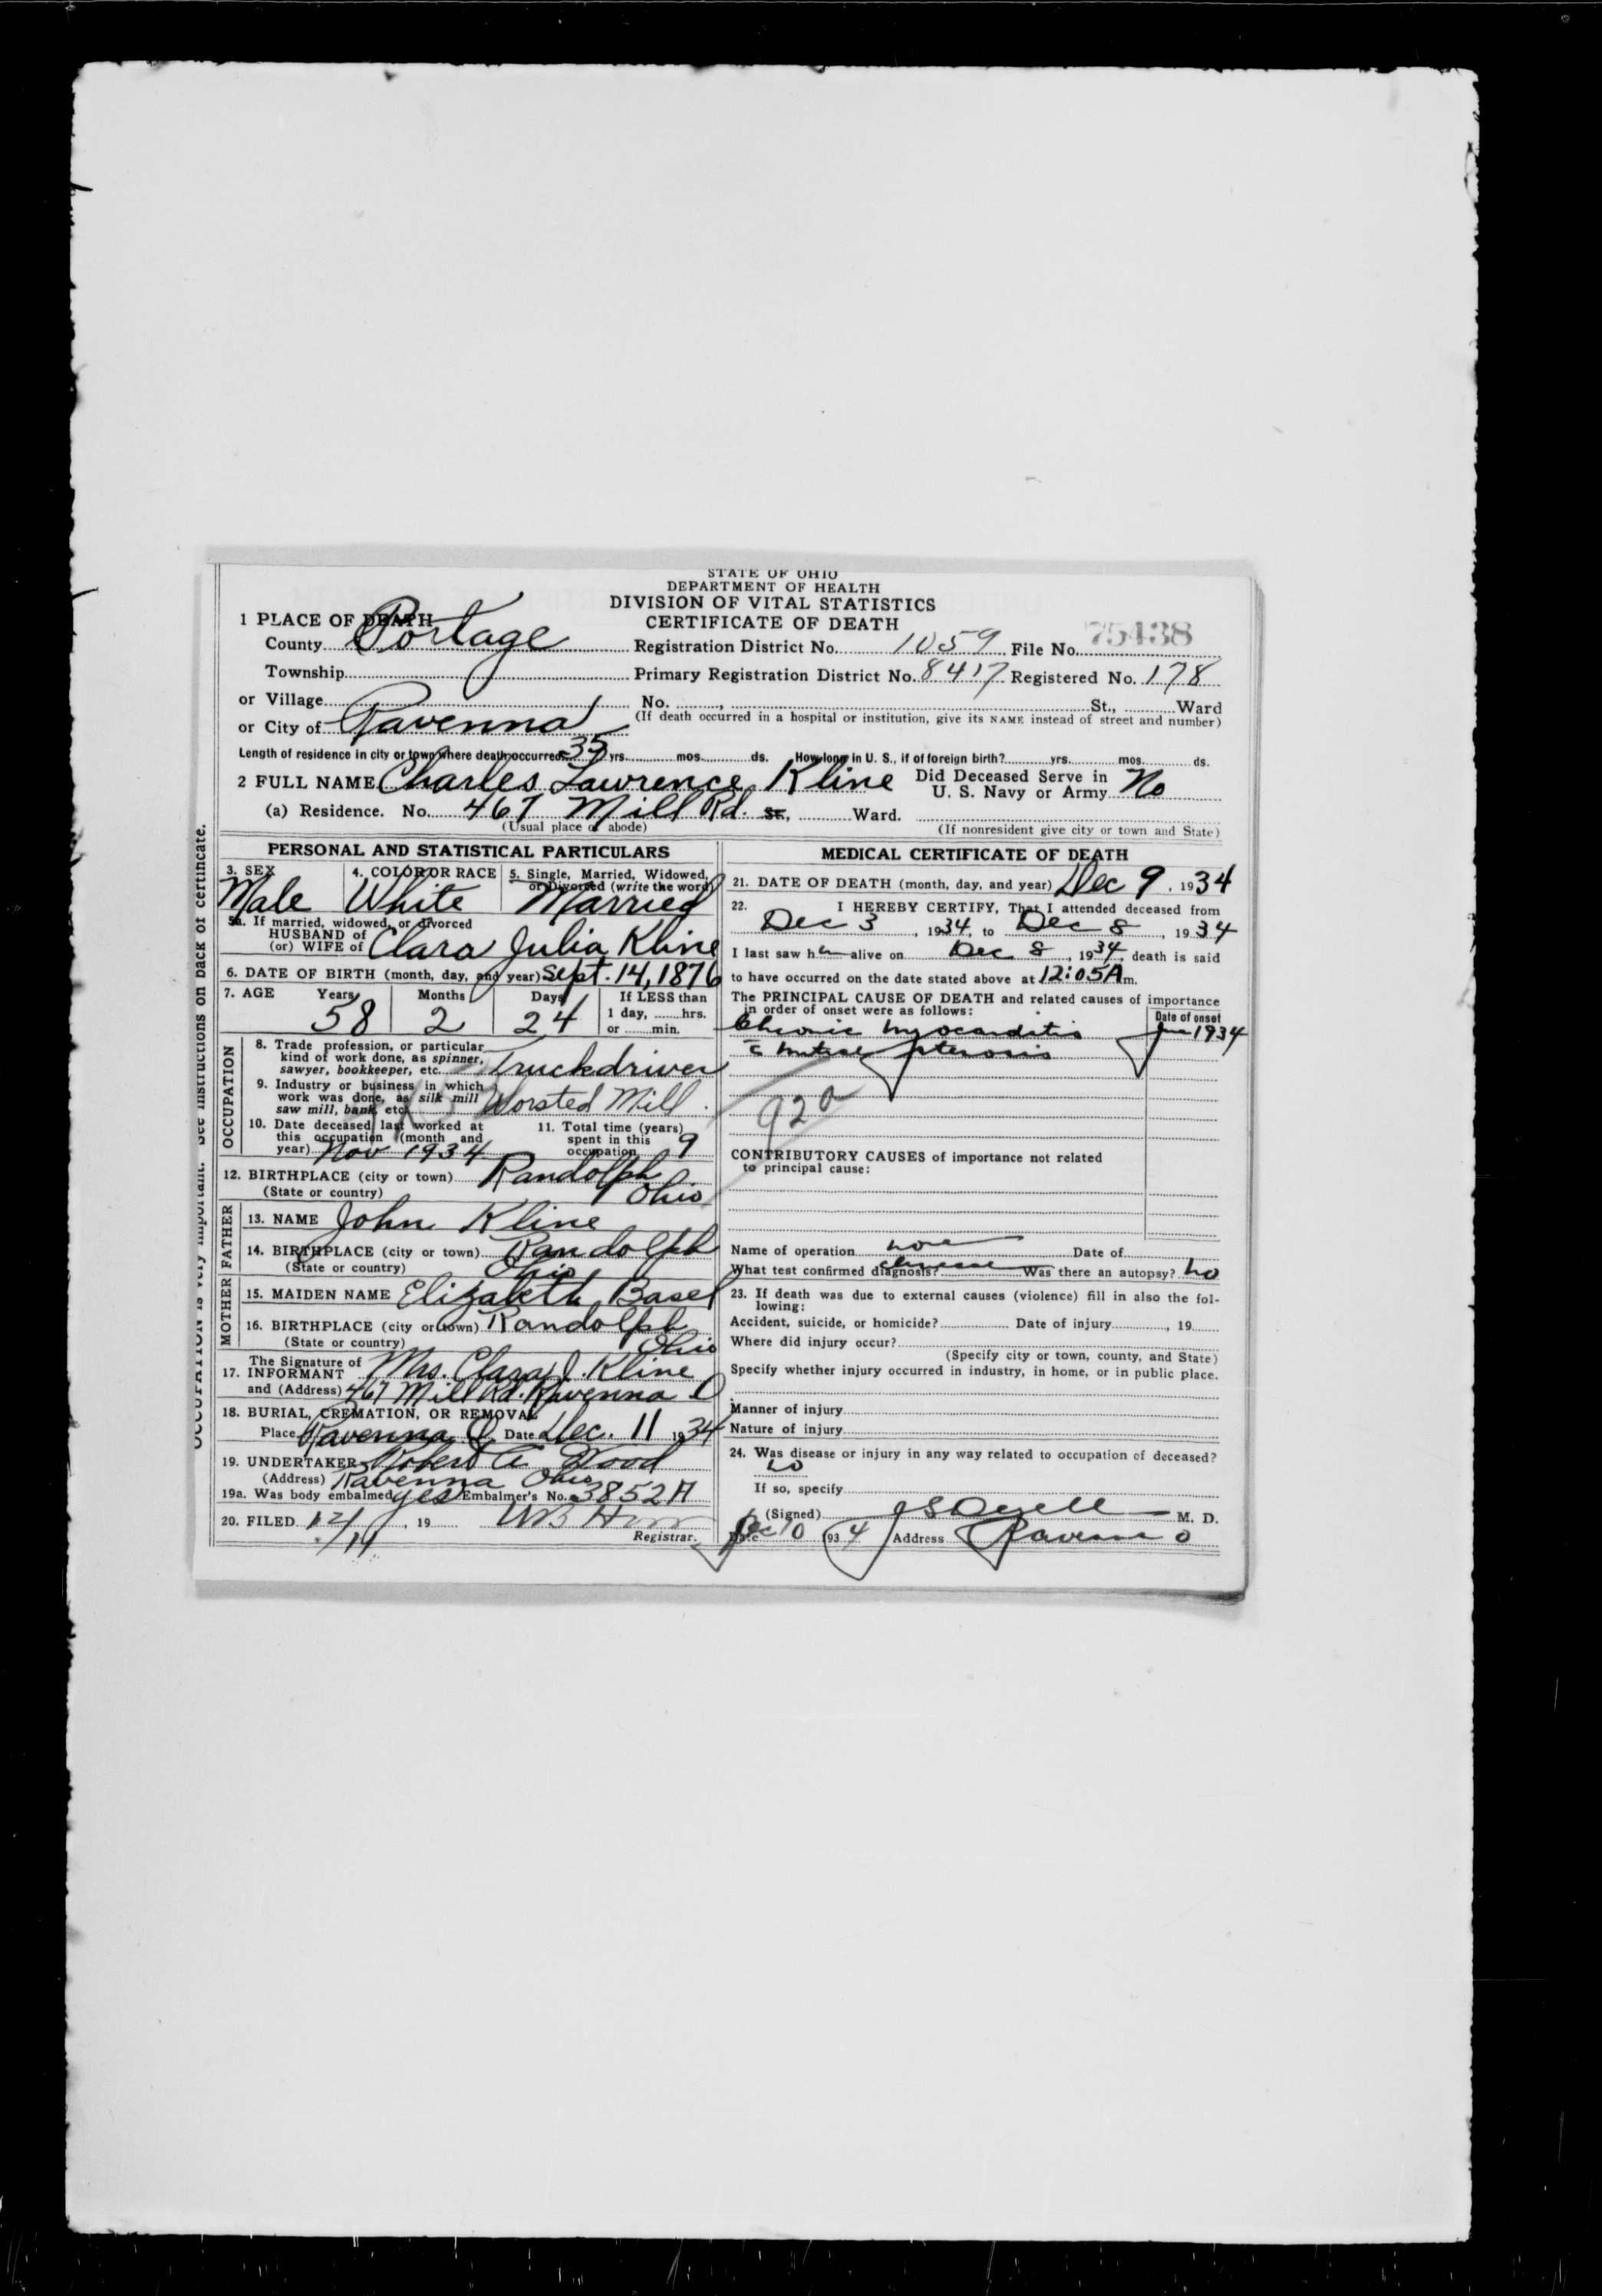 STATE OF OHIO
DEPARTMENT OF HEALTH
DIVISION OF VITAL STATISTICS
CERTIFICATE OF DEATH
1 PLACE OF DEATH
County Portage Registration District No. 1059 File No. 75438
Township Primary Registration District No. 8417 Registered No. 178
or Village No. , St., Ward
or City of Ravenna (If death occurred in a hospital or institution, give its NAME instead of street and number)
Length of residence in city or town where death occurred 35 yrs. mos. ds. How long in U. S., if of foreign birth? yrs. mos. ds.
2 FULL NAME Charles Lawrence Kline Did Deceased Serve in U. S. Navy or Army No
(a) Residence. No. 467 Mill Rd. St., Ward.
(Usual place of abode) (If nonresident give city or town and State)
PERSONAL AND STATISTICAL PARTICULARS
3. SEX 4. COLOR OR RACE 5. Single, Married, Widowed, or Divorced (write the word)
Male White Married
5a. If married, widowed, or divorced
HUSBAND of
(or) WIFE of Clara Julia Kline
6. DATE OF BIRTH (month, day, and year) Sept. 14, 1876
7. AGE Years Months Days If LESS than
1 day, hrs.
58 2 24 or min.
OCCUPATION
8. Trade profession, or particular
kind of work done, as spinner,
sawyer, bookkeeper, etc. Truckdriver
9. Industry or business in which
work was done, as silk mill
saw mill, bank, etc. Worsted Mill
10. Date deceased last worked at
this occupation (month and
year) Nov 1934
11. Total time (years)
spent in this
occupation 9
12. BIRTHPLACE (city or town) Randolph
(State or country) Ohio
FATHER
13. NAME John Kline
14. BIRTHPLACE (city or town) Randolph
(State or country) Ohio
MOTHER
15. MAIDEN NAME Elizabeth Basel
16. BIRTHPLACE (city or town) Randolph
(State or country) Ohio
The Signature of
17. INFORMANT Mrs. Clara J. Kline
and (Address) 467 Mill Rd. Ravenna O
18. BURIAL, CREMATION, OR REMOVAL
Place Ravenna O. Date Dec. 11 1934
19. UNDERTAKER Robert A Wood
(Address) Ravenna Ohio
19a. Was body embalmed yes Embalmer's No. 3852A
20. FILED , 19
Registrar.
MEDICAL CERTIFICATE OF DEATH
21. DATE OF DEATH (month, day, and year) Dec 9, 1934
22. I HEREBY CERTIFY, That I attended deceased from
Dec 3, 1934, to Dec 8, 1934
I last saw h alive on Dec 8, 1934, death is said
to have occurred on the date stated above at 12:05 A m.
The PRINCIPAL CAUSE OF DEATH and related causes of importance
in order of onset were as follows: Date of onset
Chronic myocarditis 1934
c mitral stenosis
92a
CONTRIBUTORY CAUSES of importance not related
to principal cause:
Name of operation none Date of
What test confirmed diagnosis? Was there an autopsy? no
23. If death was due to external causes (violence) fill in also the fol-
lowing:
Accident, suicide, or homicide? Date of injury , 19
Where did injury occur?
(Specify city or town, county, and State)
Specify whether injury occurred in industry, in home, or in public place.
Manner of injury
Nature of injury
24. Was disease or injury in any way related to occupation of deceased?
no
If so, specify
(Signed) M. D.
Date Dec 10 1934 Address Ravenna O
See instructions on back of certificate.
OCCUPATION is very important.